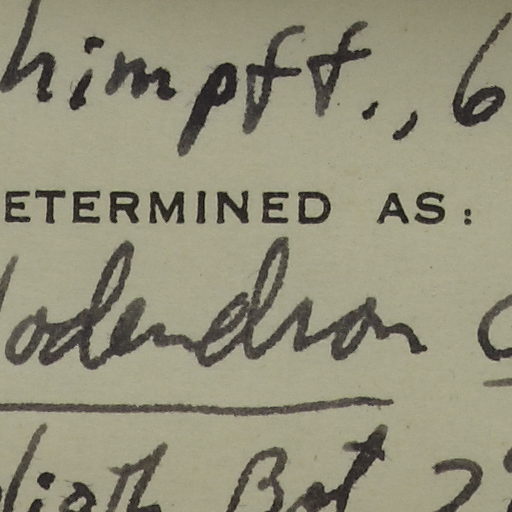 himpff., 6
ETERMINED AS:
lodendron c
lioth Bot 2